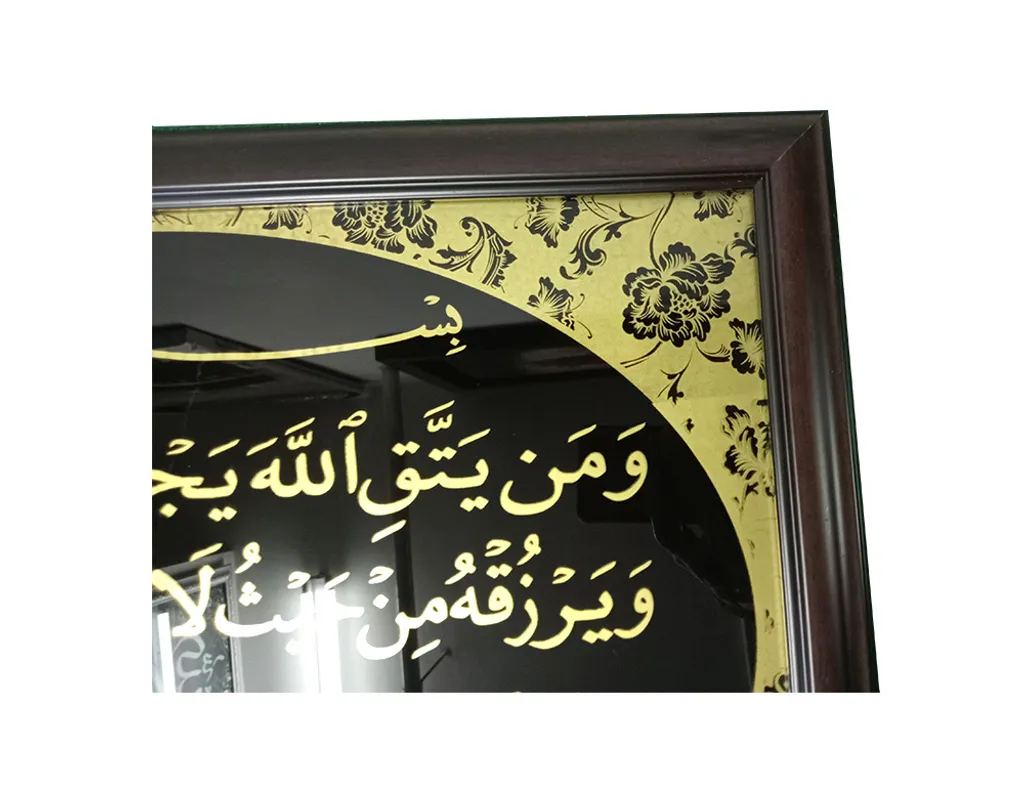 بِسْـ
وَمَن يَتَّقِ ٱللَّهَ يَجْـ
وَيَرْزُقْهُ مِنْ حَيْثُ لَا